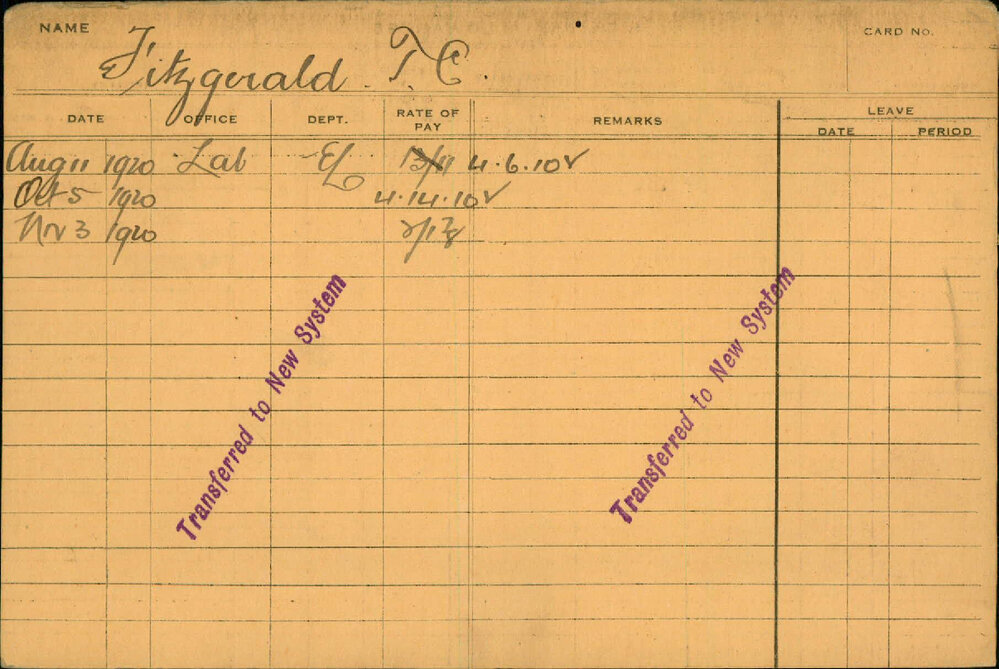 NAME Fitzgerald T. E. CARD No.
DATE OFFICE DEPT. RATE OF PAY REMARKS LEAVE
DATE PERIOD
Aug 11 1920 Lab EL 13/11 4.6.10
Oct 5 1920 4.14.10
Nov 3 1920
Transferred to New System
Transferred to New System